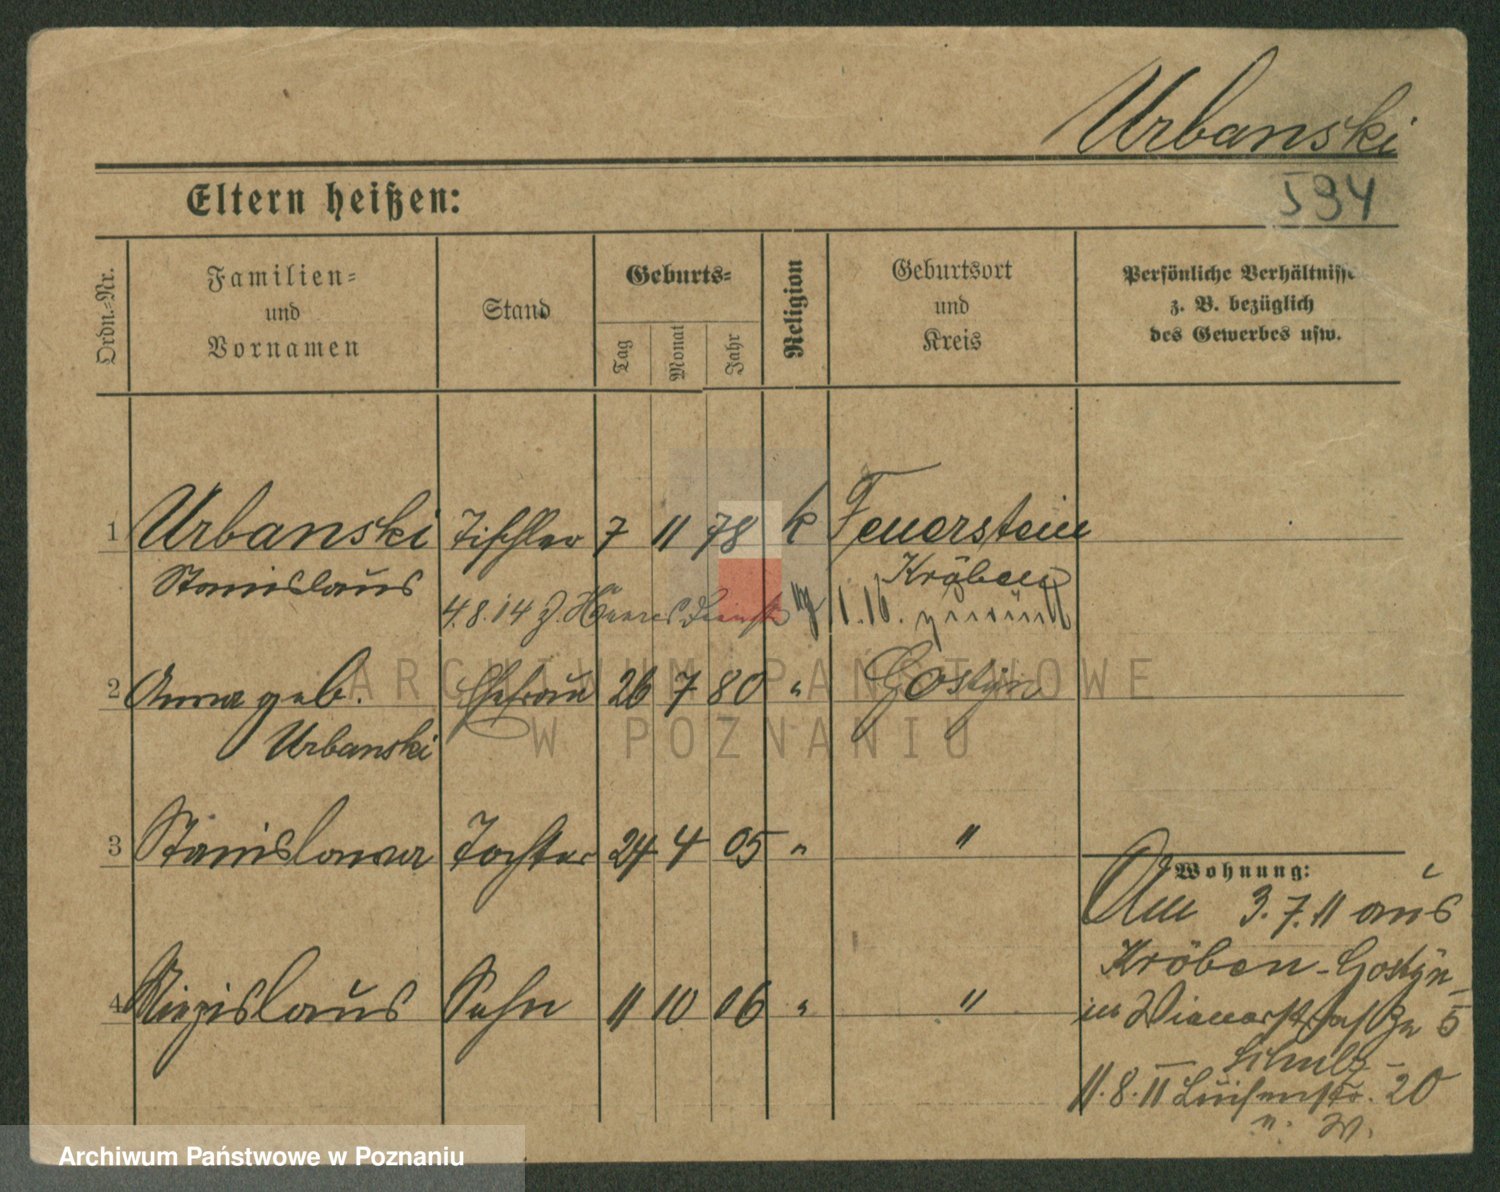 Urbanski
594
Eltern heißen:
Ordn.=Nr.
Familien=
und
Vornamen
Stand
Geburts=
Tag
Monat
Jahr
Religion
Geburtsort
und
Kreis
Persönliche Verhältnisse
z. B. bezüglich
des Gewerbes usw.
1 Urbanski Tischler 7 11 78 k Feuerstein
Stanislaus Kröben
4.8.14 z. Heeresdienst 1.16. zurück
2 Anna geb. Ehefrau 26 7 80 " Gostyn
Urbanski
3 Stanislawa Tochter 24 4 05 " "
Wohnung:
Am 3.7.11 aus
Kröben-Gostyn
4 Miezislaus Sohn 11 10 06 " "
in Wienerstraße 5
Schulz
11.8.11 Luisenstr. 20
n. W.
ARCHIWUM PAŃSTWOWE
W POZNANIU
Archiwum Państwowe w Poznaniu